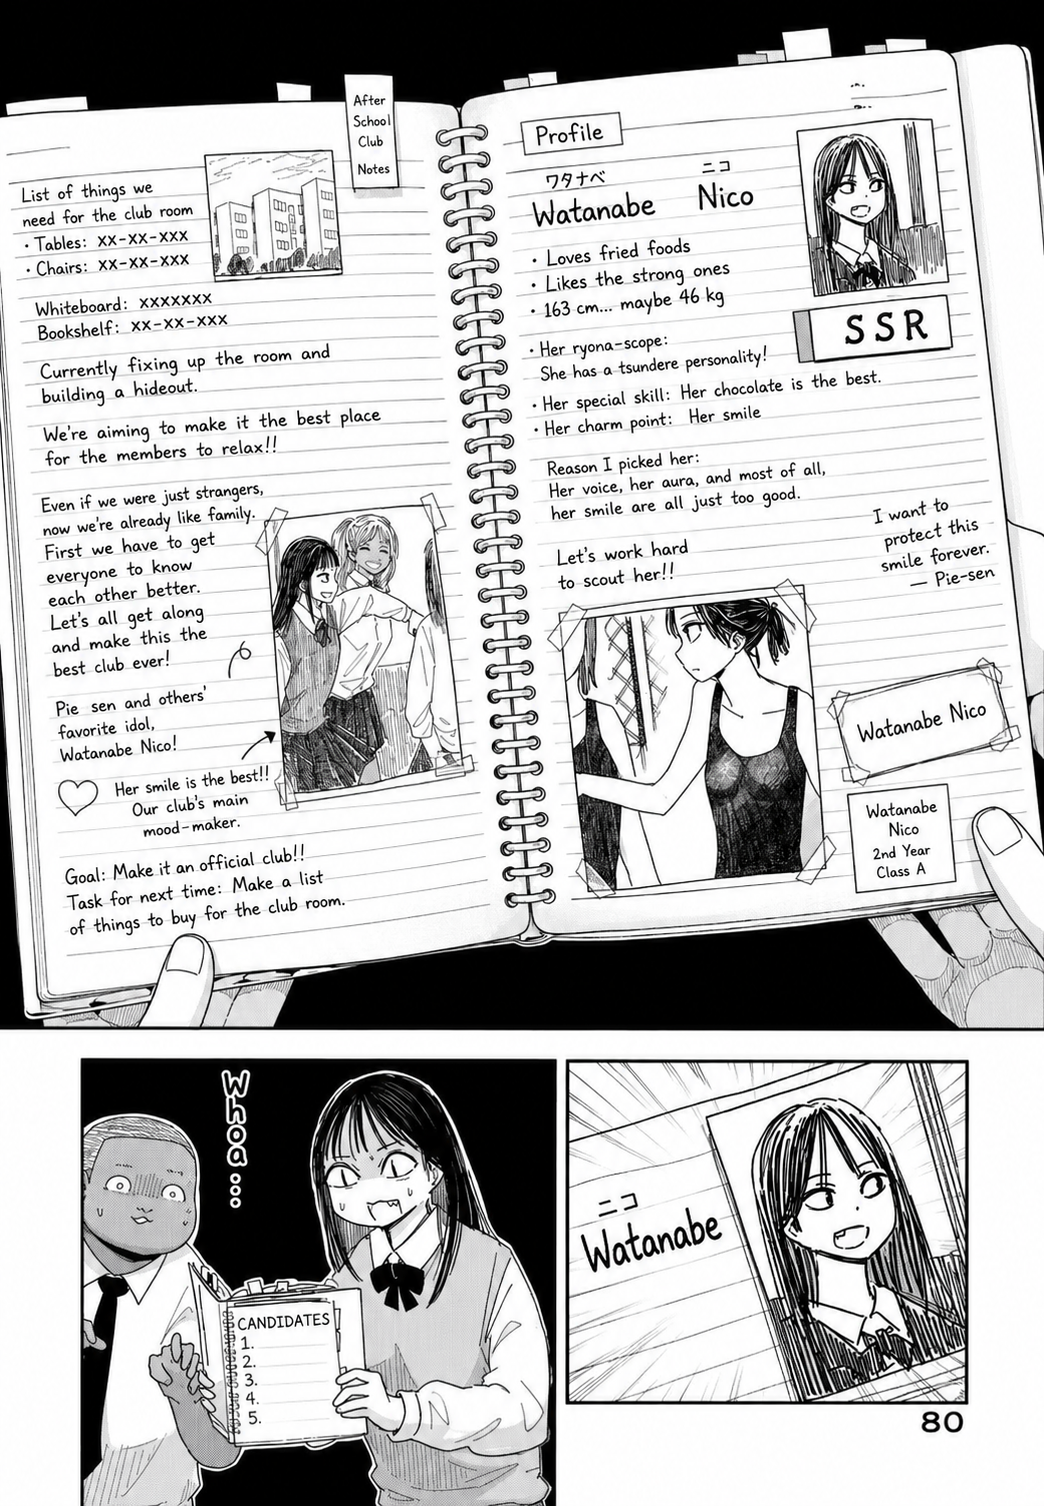 After
School
Club
Notes
List of things we
need for the club room
・Tables: xx-xx-xxx
・Chairs: xx-xx-xxx
Whiteboard: xxxxxxx
Bookshelf: xx-xx-xxx
Currently fixing up the room and
building a hideout.
We're aiming to make it the best place
for the members to relax!!
Even if we were just strangers,
now we're already like family.
First we have to get
everyone to know
each other better.
Let's all get along
and make this the
best club ever!
Pie sen and others'
favorite idol,
Watanabe Nico!
Her smile is the best!!
Our club's main
mood-maker.
Goal: Make it an official club!!
Task for next time: Make a list
of things to buy for the club room.
Profile
ワタナベ ニコ
Watanabe Nico
・Loves fried foods
・Likes the strong ones
・163 cm... maybe 46 kg
SSR
・Her ryona-scope:
She has a tsundere personality!
・Her special skill: Her chocolate is the best.
・Her charm point: Her smile
Reason I picked her:
Her voice, her aura, and most of all,
her smile are all just too good.
Let's work hard
to scout her!!
I want to
protect this
smile forever.
— Pie-sen
Watanabe Nico
Watanabe
Nico
2nd Year
Class A
Whoa...
CANDIDATES
1.
2.
3.
4.
5.
ニコ
Watanabe
80